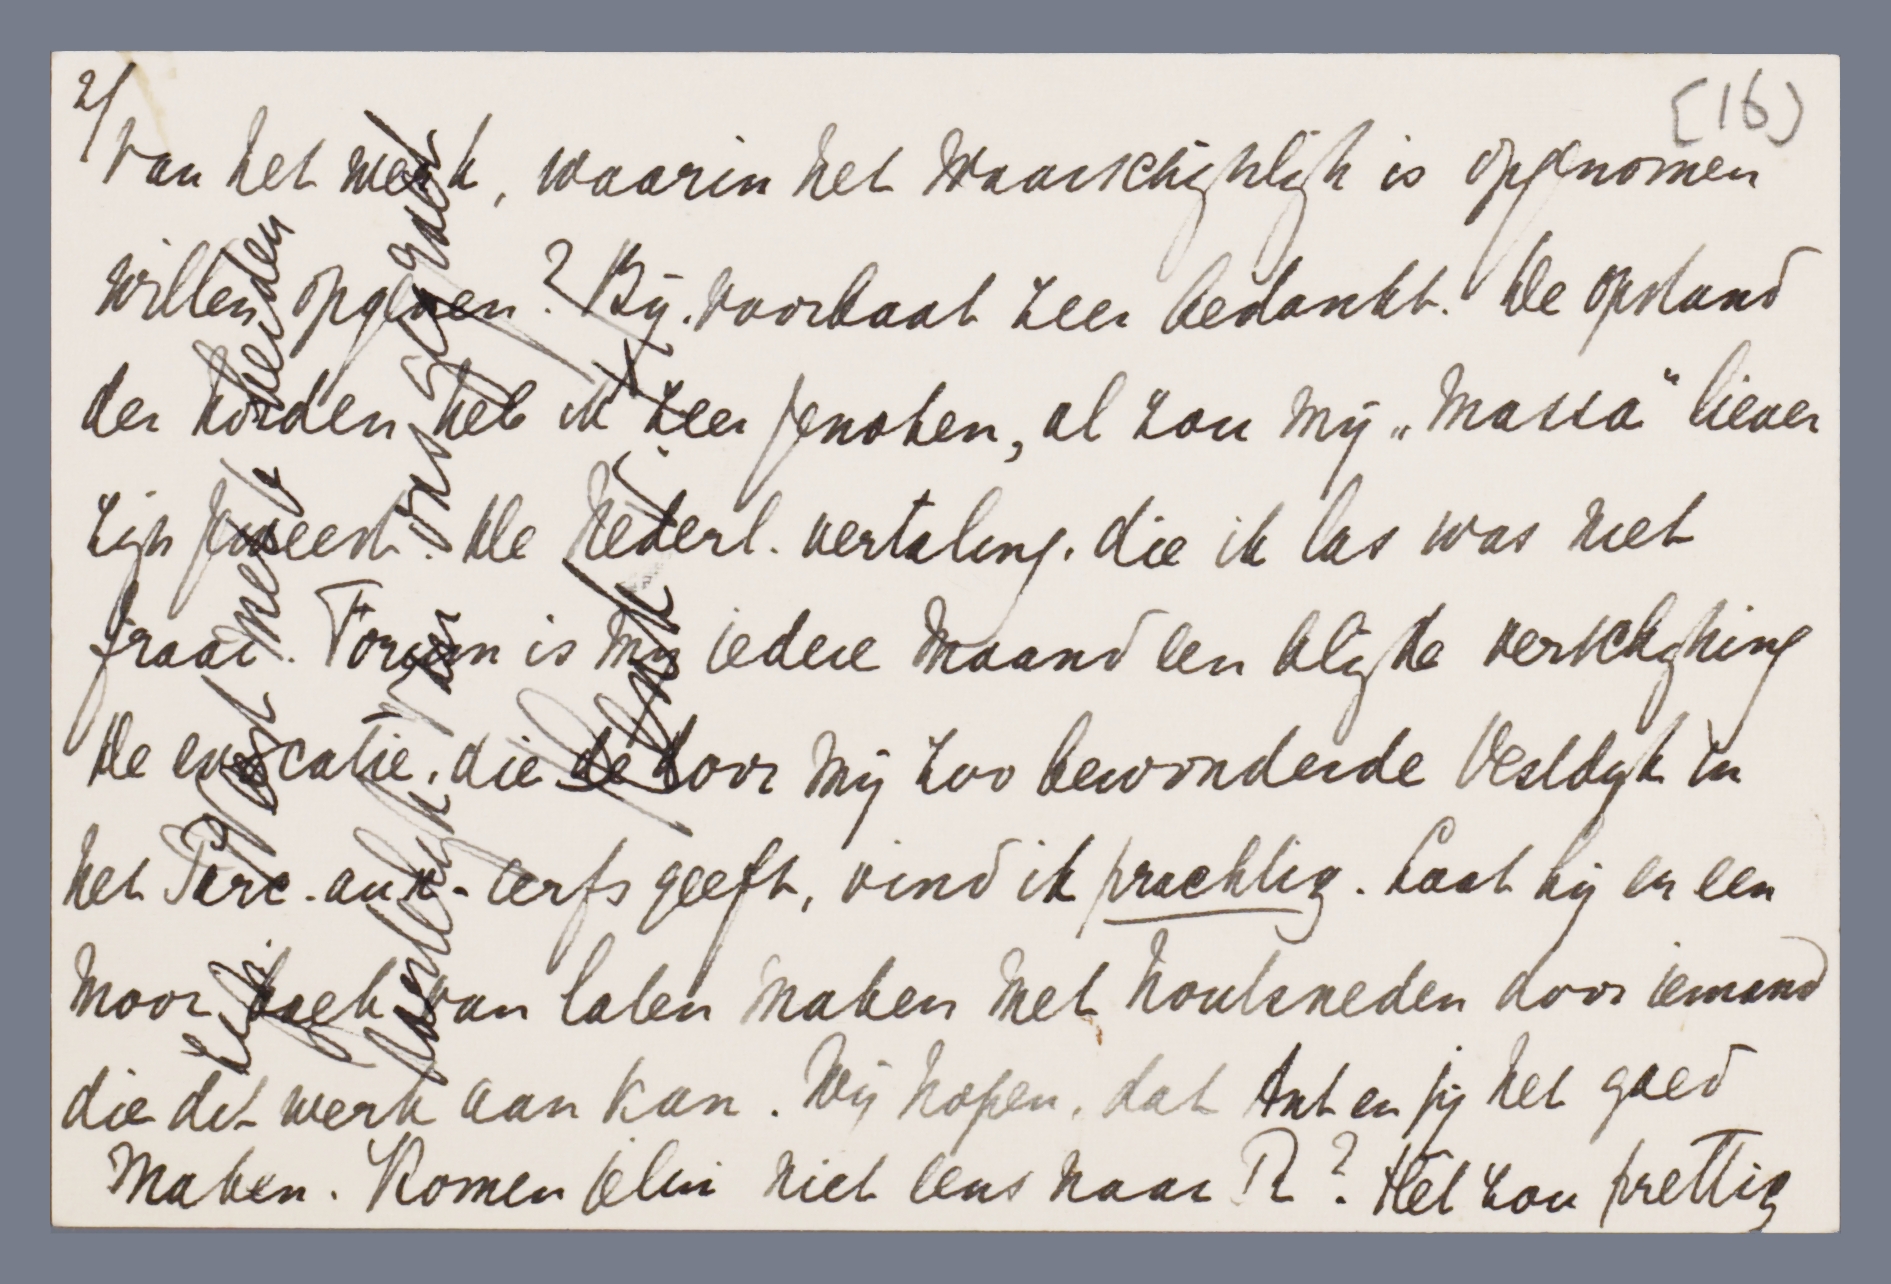 2/
[16]
van het werk, waarin het waarschijnlijk is opgenomen
willen opgeven? Bij voorbaat zeer bedankt. De opstand
der horden heb ik zeer genoten, al zou mij „massa" liever
zijn geweest. De Nederl. vertaling, die ik las was niet
fraai. Forum is mij iedere maand een blijde verschijning
De evocatie, die de door mij zoo bewonderde Vestdijk in
het Parc-aux-cerfs geeft, vind ik prachtig. Laat hij er een
mooi boek van laten maken met houtsneden door iemand
die dit werk aan kan. Wij hopen, dat Ant en jij het goed
maken. Komen jelui niet eens naar R? Het zou prettig
zijn. Met beiden
hartelijk van ons